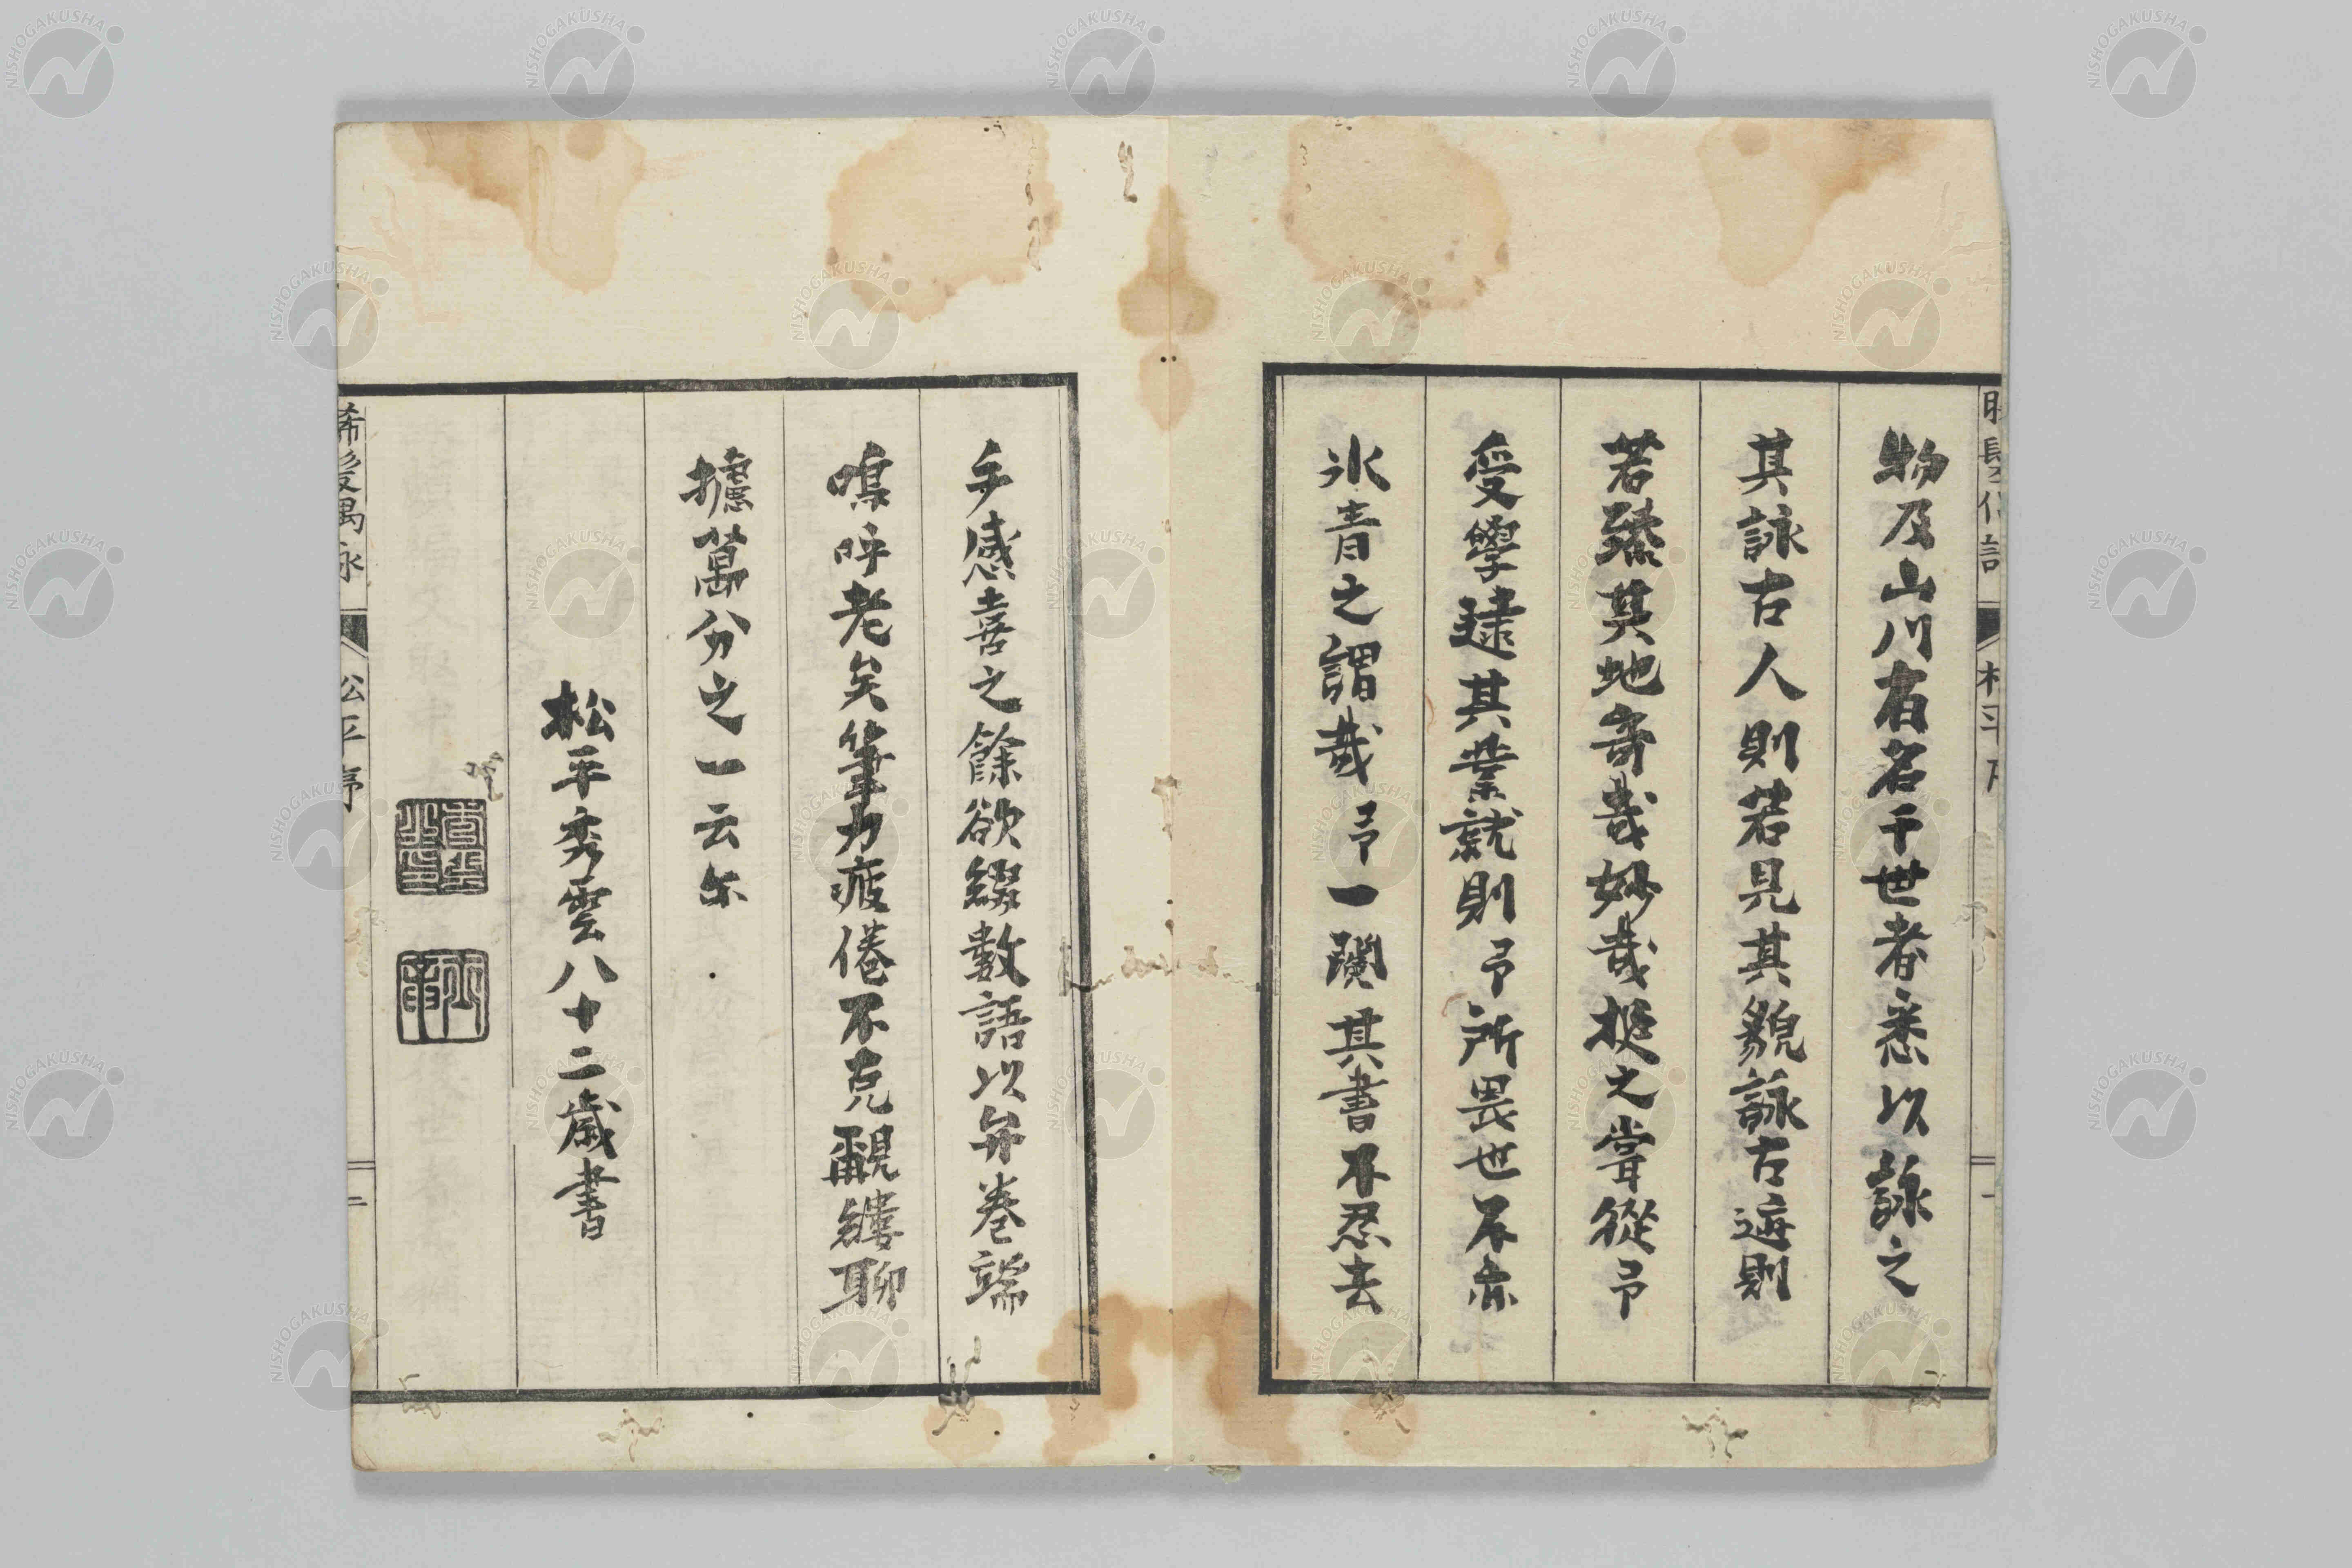 物及山川有名于世者悉以詠之
其詠古人則若見其貌詠古迹則
若臻其地奇哉妙哉挺之嘗從予
受學逮其業就則予所畏也不亦
氷青之謂哉予一讀其書不忍去
手感喜之餘欲綴數語以弁巻端
嗚呼老矣筆力疲倦不克覼縷聊
攄萬分之一云尓
松平秀雲八十二歳書
晞髮偶詠 松平序 二
NISHOGAKUSHA